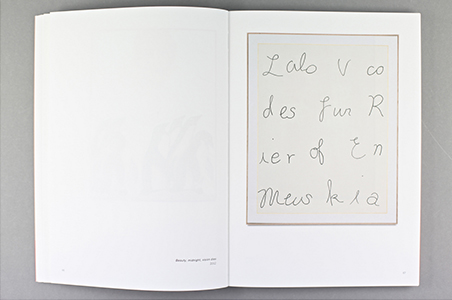 Lalo V co
des fur R
ier of En
Meus k i a